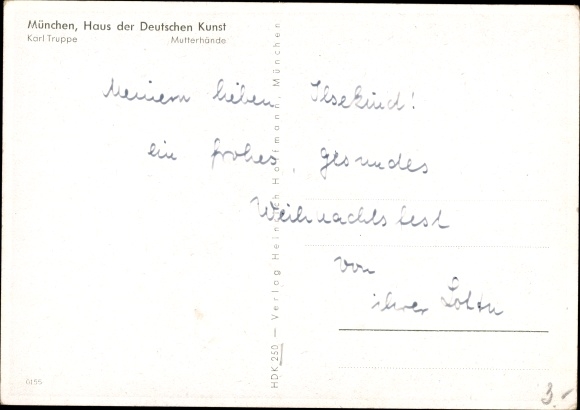 München, Haus der Deutschen Kunst
Karl Truppe Mutterhände
Meinem lieben Ilsekind!
ein frohes, gesundes
Weihnachtsfest
von
ihrer
HDK 250 — Verlag Heinrich Hoffmann, München
0155
3.-